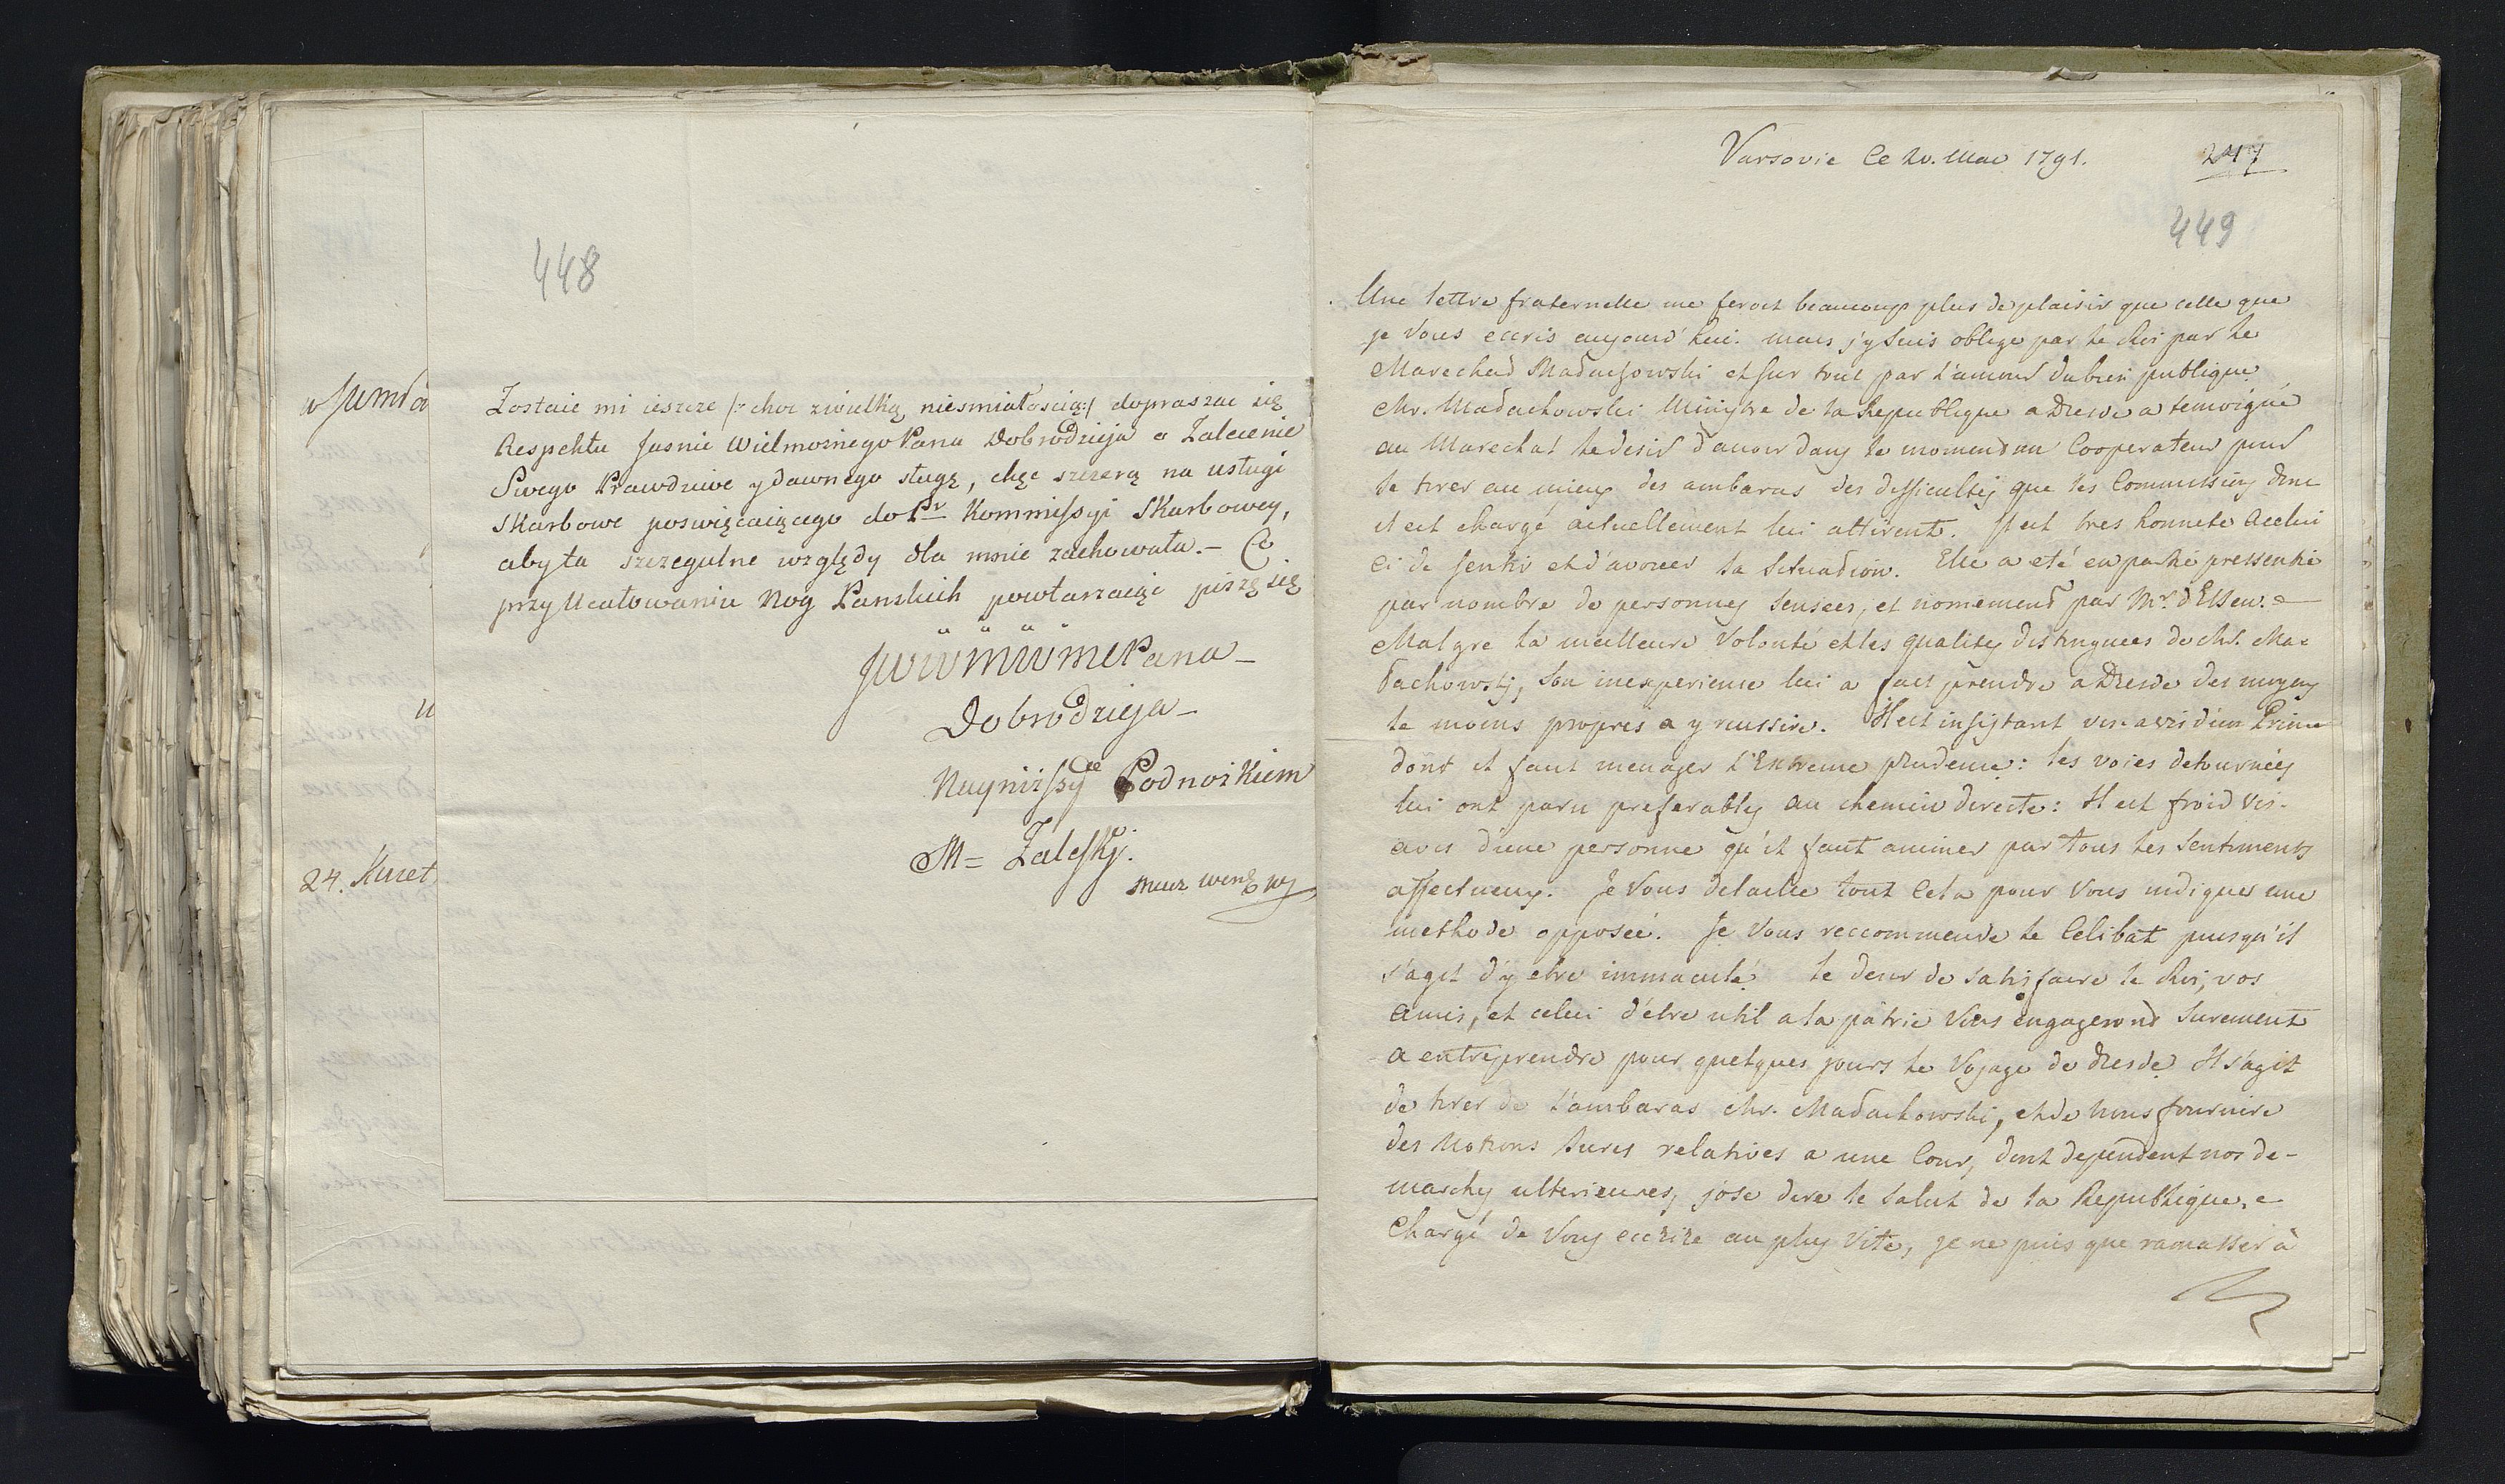 448
Zostaie mi ieszcze /: choc zwielką niesmiałoscią :/ dopraszac się
Respektu Jasnie Wielmoznego Pana Dobrodzieja o Zalecenie
Swego Prawdziwe y dawnego sługę, chęc szczerą na usługi
Skarbowe poswięcaiącego do Pr Kommissyi Skarbowey,
abyta szczegulne względy dla mnie zachowała. — Co
przy Ucałowaniu Nog Panskich powtarzaiąc piszę się
JWWMWMPana —
Dobrodzieja —
Nayniższym Podnożkiem
M= Zaleskj.
24. Kuret
Varsovie Ce 20. Mai 1791.
247
449
Une lettre fraternelle me feroit beaucoup plus de plaisir que celle que
je Vous ecris aujourd'hui. mais j'y suis oblige par le Roi par le
Marechal Malachowski et sur tout par l'amour du bien publique
Mr. Malachowski Ministre de la Republique a Dresde a temoigné
au Marechal le desir d'avoir dans le moment un Cooperateur pour
le tirer au mieux des ambaras des difficultes que les Commissions dont
il est chargé actuellement lui attirent. Il est tres honnete a celui
ci de sentir et d'avouer sa Situation. Elle a eté en partie pressentie
par nombre de personnes sensees, et nomement par Mr. d'Essen. —
Malgre la meilleure Volonté et les qualites distinguees de Mr. Ma=
lachowski, Son inexperience lui a fait prendre a Dresde des moyens
le moins propres a y reussire. Il est insistant vis a vis d'un Prince
dont il faut menager l'Extreme prudence: les voies detournées
lui ont paru preferables au chemin directe: Il est froid vis-
avis d'une personne qu'il faut animer par tous les Sentiments
affectueux. Je Vous detaille tout cela pour Vous indiquer une
methode opposée. Je Vous reccommende le Célibat puisqu'il
s'agit d'y etre immaculé. le desir de satisfaire le Roi, vos
Amis, et celui d'être util a la patrie Vous engageront Surement
a entreprendre pour quelques jours le Voyage de Dresde. Il s'agit
de tirer de l'ambaras Mr. Malachowski, et de nous fournire
des Notions Sures relatives a une Cour, dont dependent nos de-
marches ulterieures, j'ose dire le salut de la Republique. —
Chargé de Vous ecrire au plus Vite, je ne puis que ramasser à